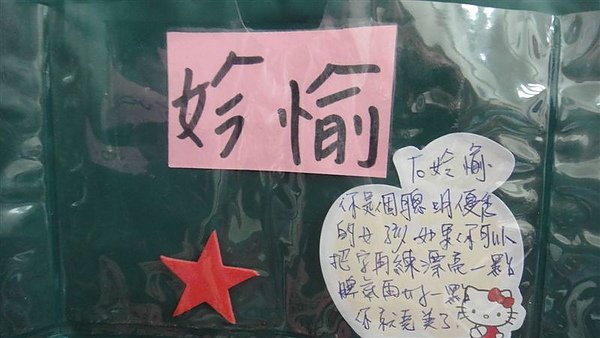 妗愉
To 妗愉
你是個聰明優秀
的女孩,如果你可以
把字再練漂亮一點
脾氣再好一點
你就完美了